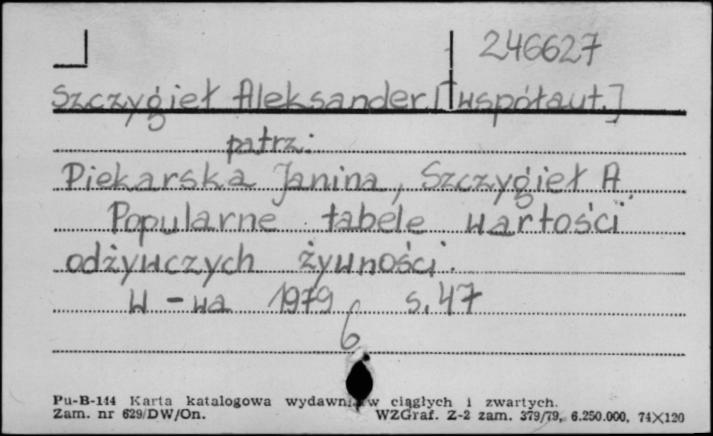 246627
Szczygieł Aleksander [współaut.]
patrz:
Piekarska Janina, Szczygieł A.
Popularne tabele wartości
odżywczych żywności.
W-wa 1979 s. 47
6
Pu-B-144 Karta katalogowa wydawnictw ciągłych i zwartych.
Zam. nr 629/DW/On. WZGraf. Z-2 zam. 379/79, 6.250.000, 74×120